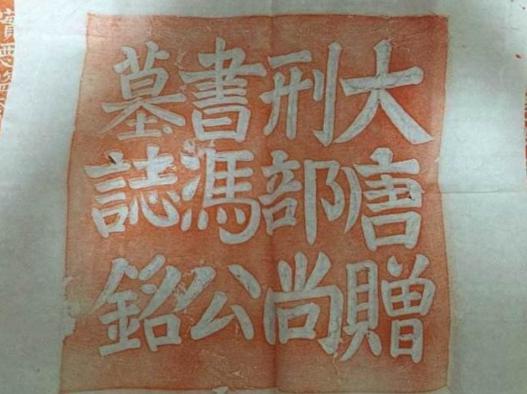 大唐贈
刑部尚
書馮公
墓誌銘